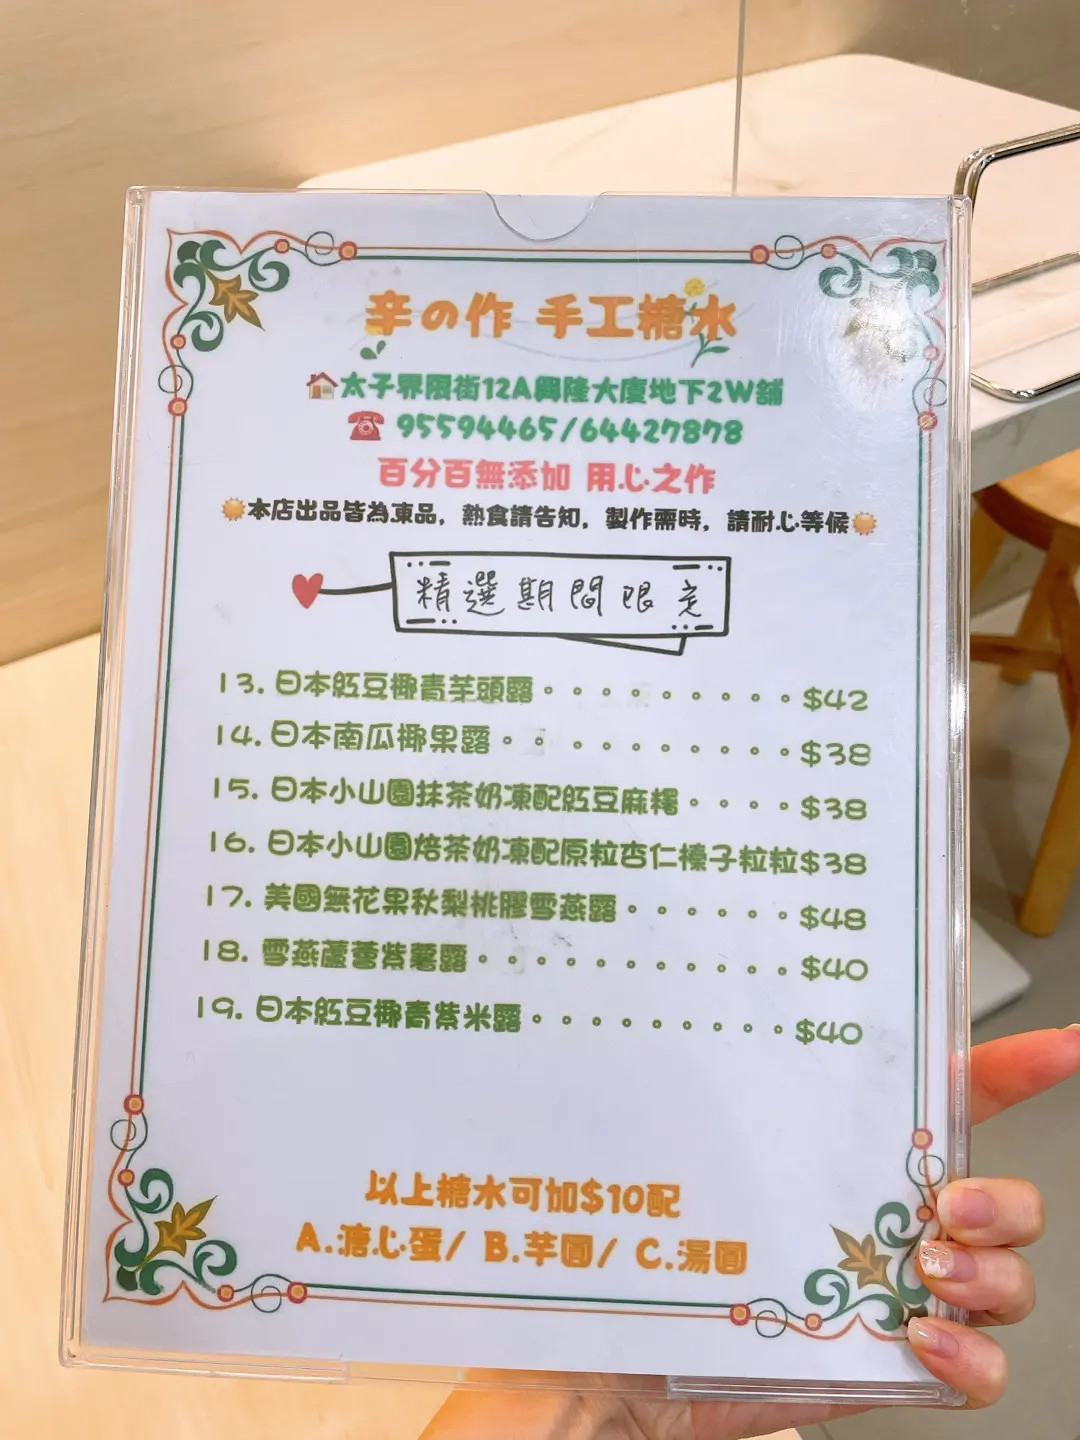 辛の作 手工糖水
太子界限街12A興隆大廈地下2W舖
95594465/64427878
百分百無添加 用心之作
本店出品皆為凍品，熱食請告知，製作需時，請耐心等候
精選期間限定
13. 日本紅豆椰青芋頭露。。。。。。。。。$42
14. 日本南瓜椰果露。。。。。。。。。。$38
15. 日本小山園抹茶奶凍配紅豆麻糬。。。。$38
16. 日本小山園焙茶奶凍配原粒杏仁榛子粒粒$38
17. 美國無花果秋梨桃膠雪燕露。。。。。。$48
18. 雪燕蘆薈紫薯露。。。。。。。。。。。$40
19. 日本紅豆椰青紫米露。。。。。。。。。$40
以上糖水可加$10配
A.溏心蛋/ B.芋圓/ C.湯圓